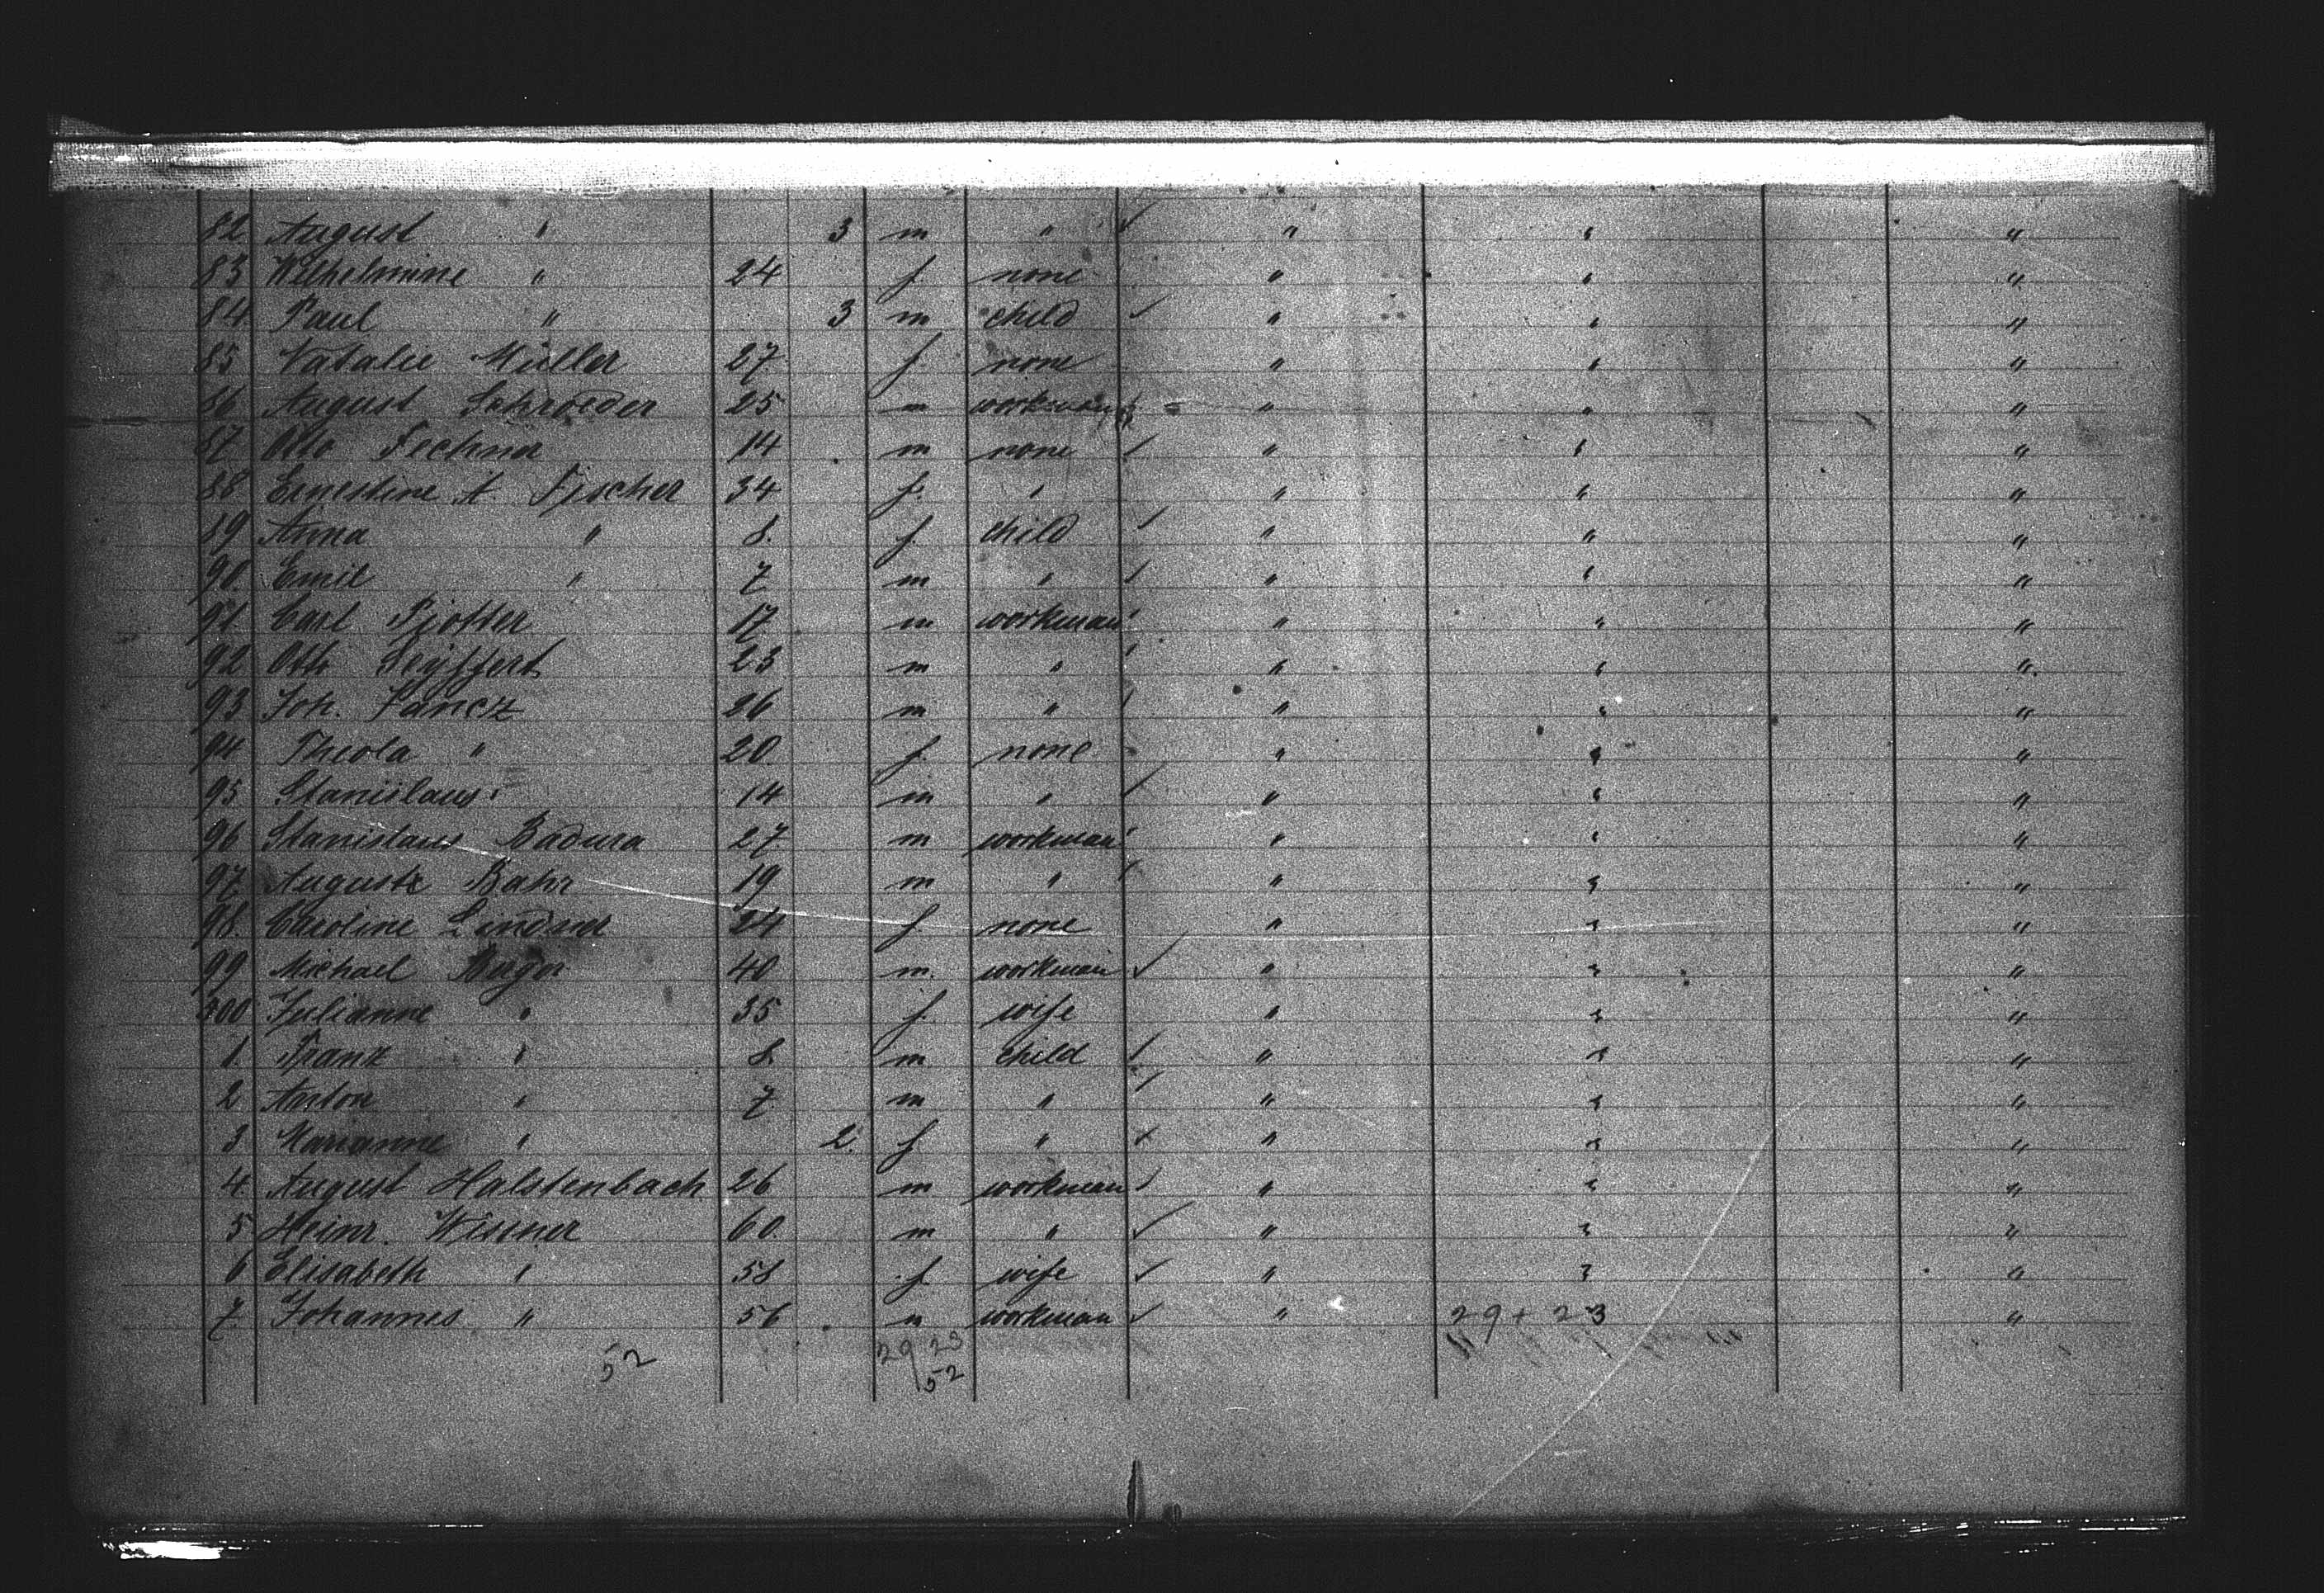 82 August " 3 m " " " "
83 Wilhelmine " 24 f. none " " "
84 Paul " 3 m child " " "
85 Natalie Müller 27 f. none " " "
86 August Schroeder 25 m workman " " "
87 Otto Fechner 14 m none " " "
88 Ernestine A. Fischer 34 f. " " " "
89 Anna " 8. f. child " " "
90. Emil " 7 m " " " "
91 Carl Pjotter 17 m workman " " "
92 Otto Seyffert 23 m " " " "
93 Joh. 26 m " " " "
94 Theola " 20. f. none " " "
95 Stanislaus " 14 m " " " "
96 Stanislaus Badura 27 m workman " " "
97 Auguste Bahr 19 m " " " "
98. Caroline Lindner 24 f none " " "
99 Michael 40 m. workman " " "
300 Julianne " 35 f. wife " " "
1. Frank " 8. m child " " "
2 Anton " 7 m " " " "
3 Marianne " 2. f " " " "
4 August Halstenbach 26 m workman " " "
5 Heinr. Wissner 60. m " " " "
6 Elisabeth " 58 f. wife " " "
7 Johannes " 56 m workman " 29 + 23 "
52 29 23
52